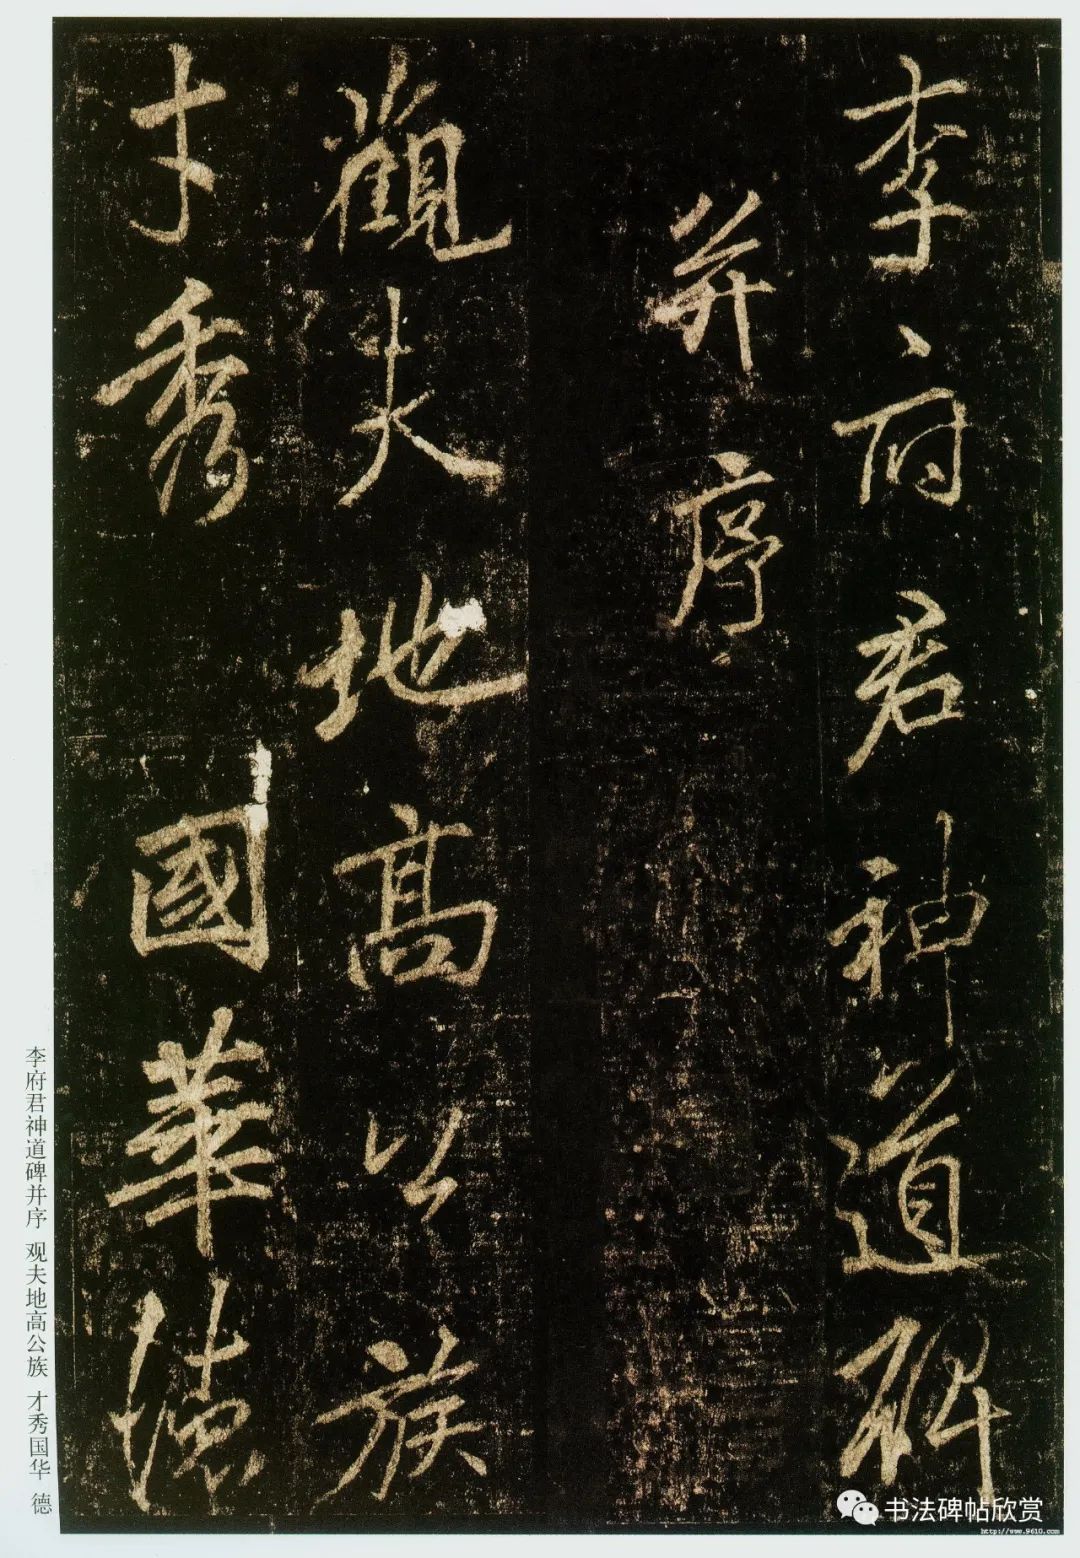 李府君神道碑
并序
觀夫地高公族
才秀
國華德
李府君神道碑并序 观夫地高公族 才秀国华 德
书法碑帖欣赏
http://www.9610.com